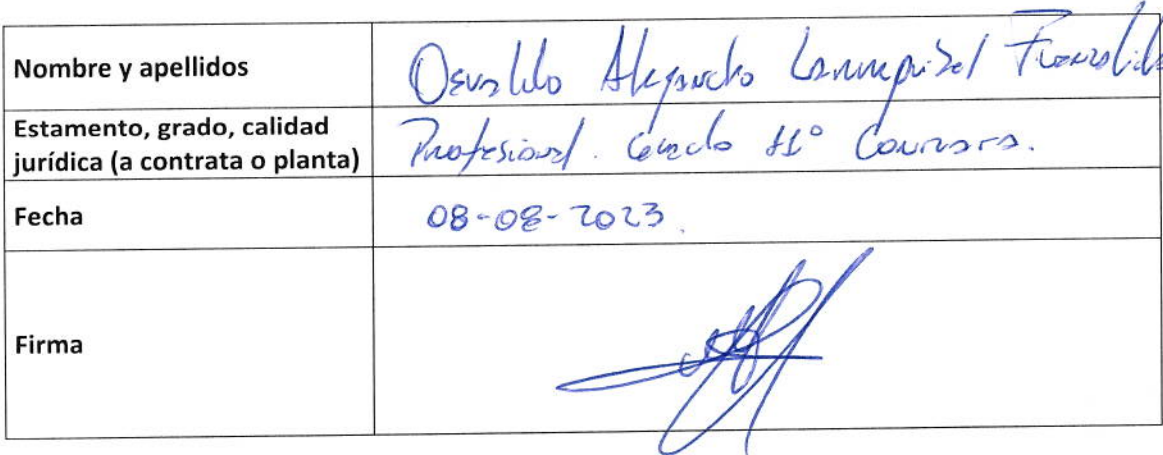 Nombre y apellidos
Osvaldo Alejandro Fuenzalida
Estamento, grado, calidad
jurídica (a contrata o planta)
Profesional. Grado 11° Contrata.
Fecha
08-08-2023.
Firma